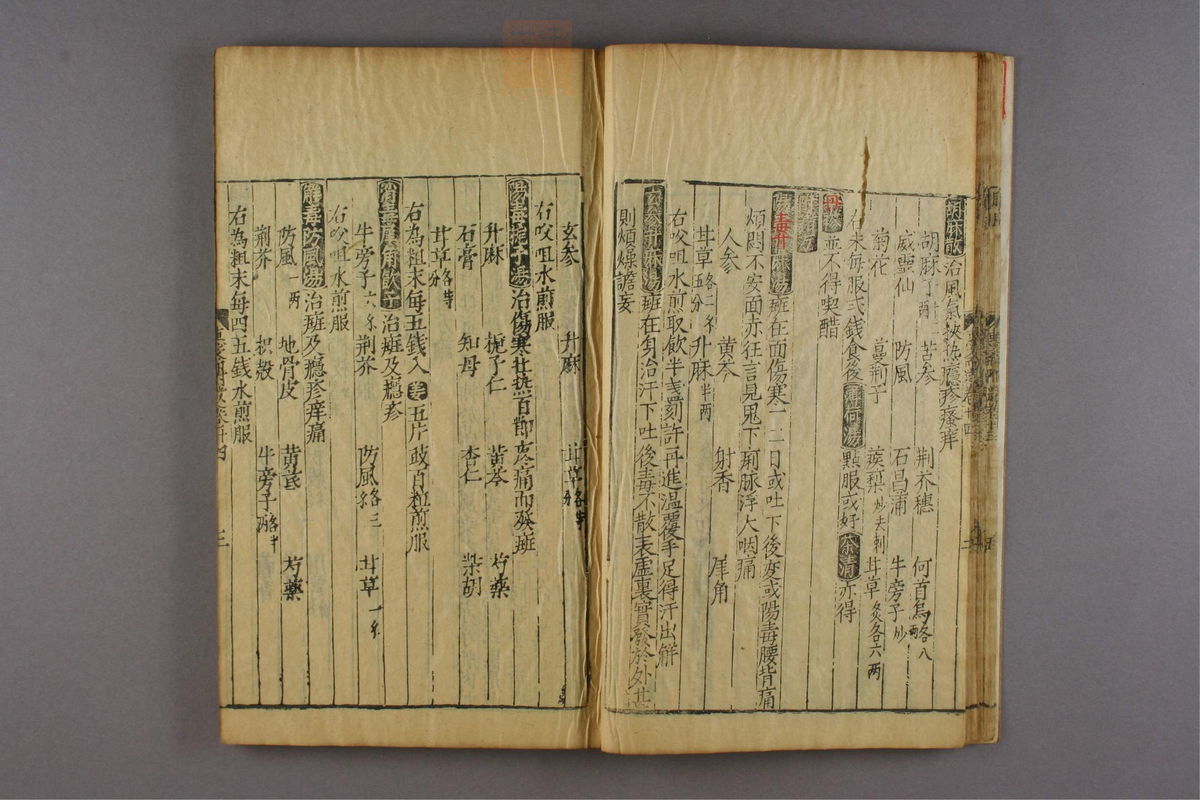 胡麻散 治風氣挾热癮疹瘙痒
胡麻子 苦参 荆芥穗 何首烏各八两
威靈仙 防風 石昌蒲 牛旁子炒
菊花 蔓荆子 蒺䔧炒去刺 甘草炙各六两
右末每服弍錢食後薄荷湯點服或好茶清亦得
並不得喫醋
陽毒升麻湯 班在面傷寒一二日或吐下後变或陽毒腰背痛
煩悶不安面赤狂言見鬼下痢脉浮大咽痛
人参 黄芩 射香 犀角
甘草各二分 升麻半两
右㕮咀水煎取飲半盏刻許再進溫覆手足得汗出解
玄参升麻湯 班在身治汗下吐後毒不散表虚裏實發於外甚
則煩燥譫妄
玄参 升麻 甘草各等分
右㕮咀水煎服
陽毒梔子湯 治傷寒壮热百節疼痛而發班
升麻 梔子仁 黄芩 芍藥
石膏 知母 杏仁 柴胡
甘草各等分
右為粗末每五錢入姜五片豉百粒煎服
消毒犀角飲子 治班及癮疹
牛旁子六 荆芥 防風各三 甘草一
右㕮咀水煎服
解毒防風湯 治班及癮疹痒痛
防風一两 地骨皮 黄芪 芍藥
荆芥 枳殻 牛旁子各半两
右為粗末每四五錢水煎服